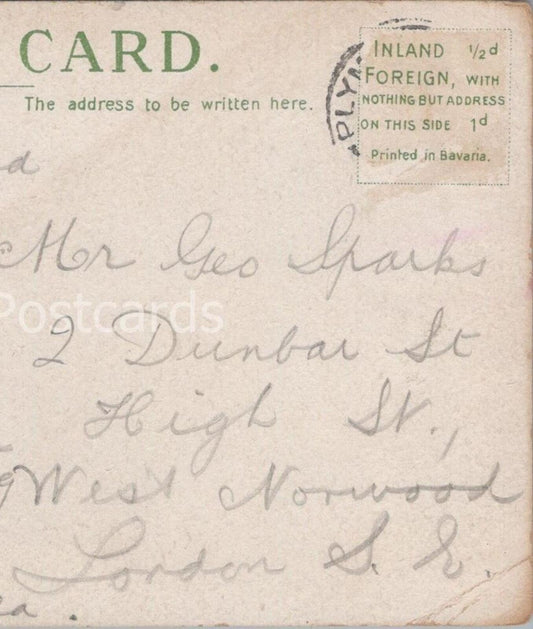 CARD.
The address to be written here.
PLYM
INLAND 1/2d
FOREIGN, WITH
NOTHING BUT ADDRESS
ON THIS SIDE 1d
Printed in Bavaria.
Mr Geo Sparks
Postcards
2 Dunbar St
High St.,
West Norwood
London S. E.